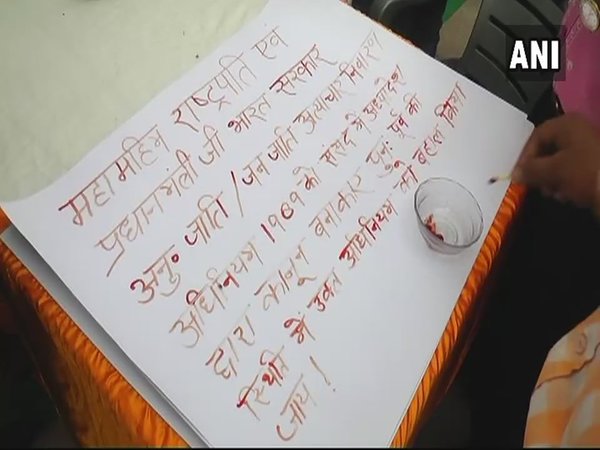 ANI
महामहिम राष्ट्रपति एवं
प्रधानमंत्री जी भारत सरकार
अनु॰ जाति / जन जाति अत्याचार निवारण
अधिनियम १९८९ को संसद में अध्यादेश
द्वारा कानून बनाकार पुनः पूर्व की
स्थिति में उक्त अधिनियम को बहाल किया
जाय !